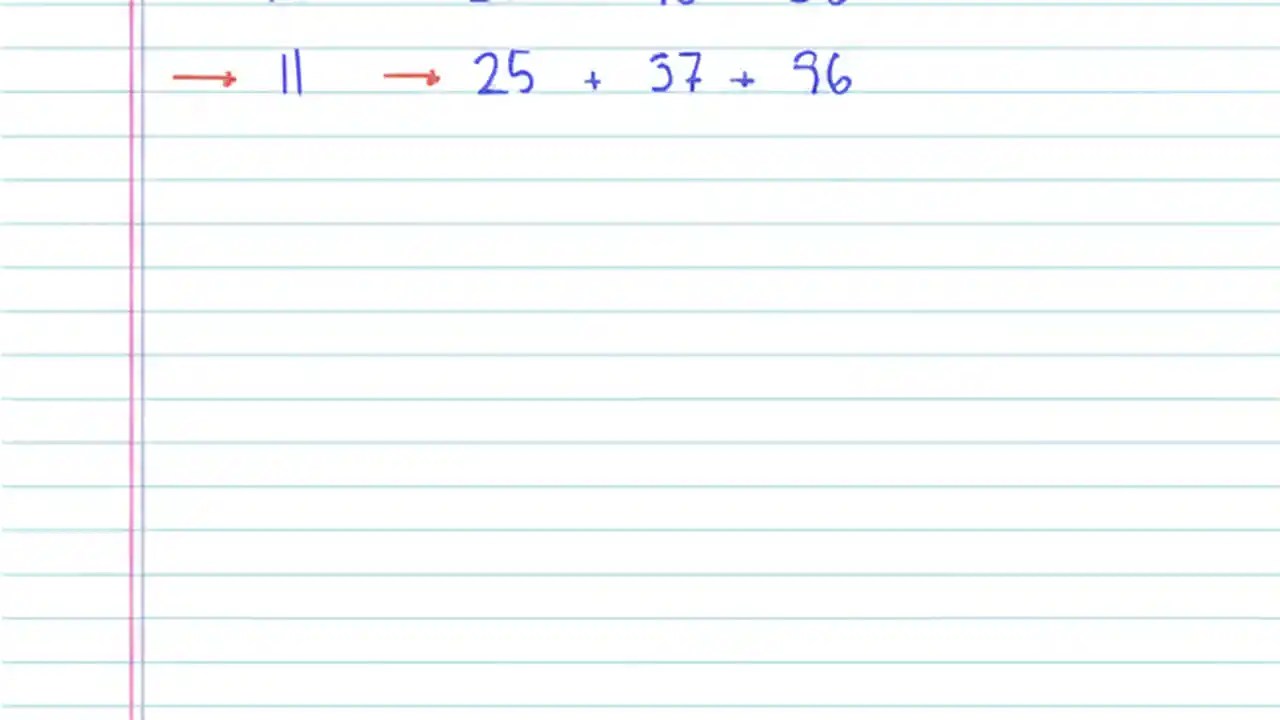 → 11 → 25 + 37 + 96